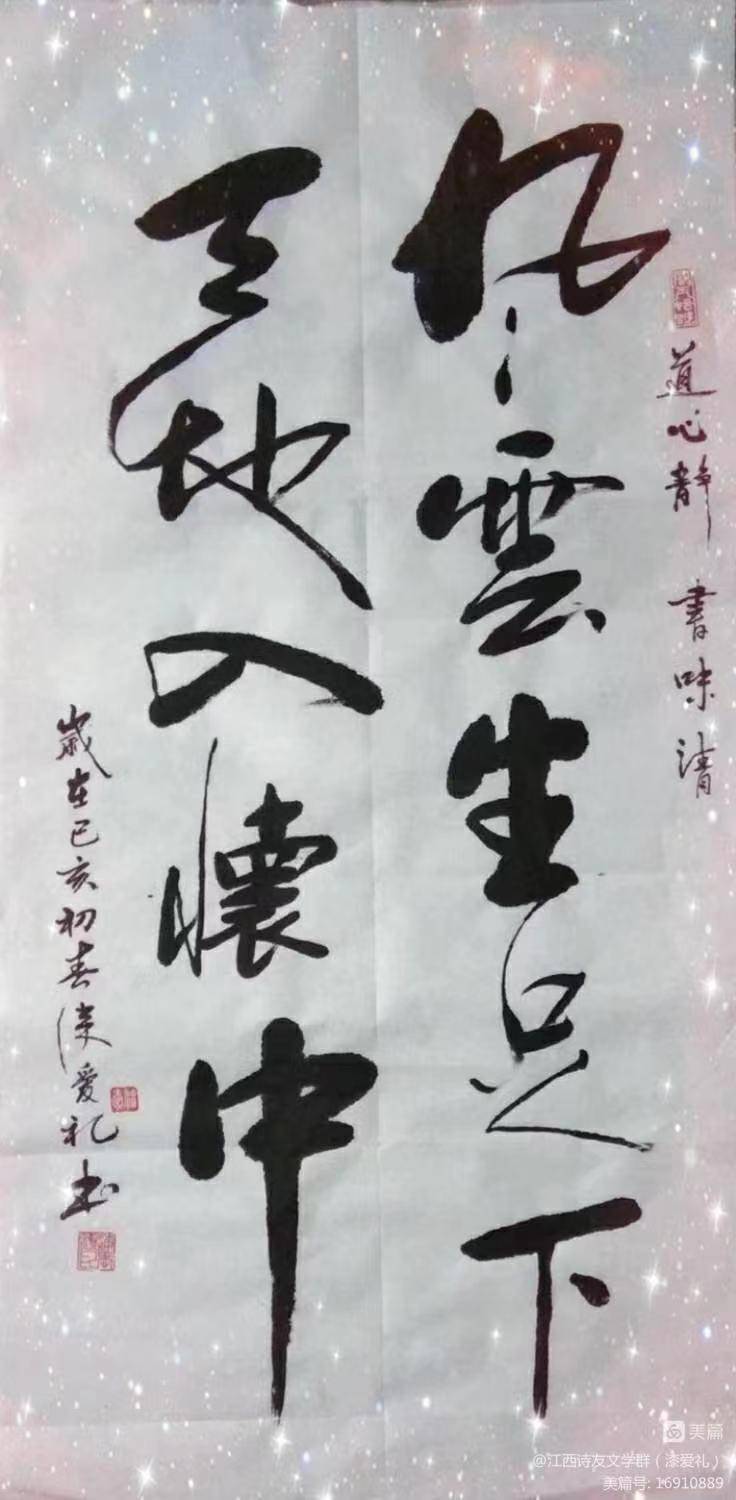 道心静 書味清
风雲生足下
天地入懷中
歲在己亥初春漆爱礼书
美篇
@江西诗友文学群（漆爱礼）
美篇号: 16910889